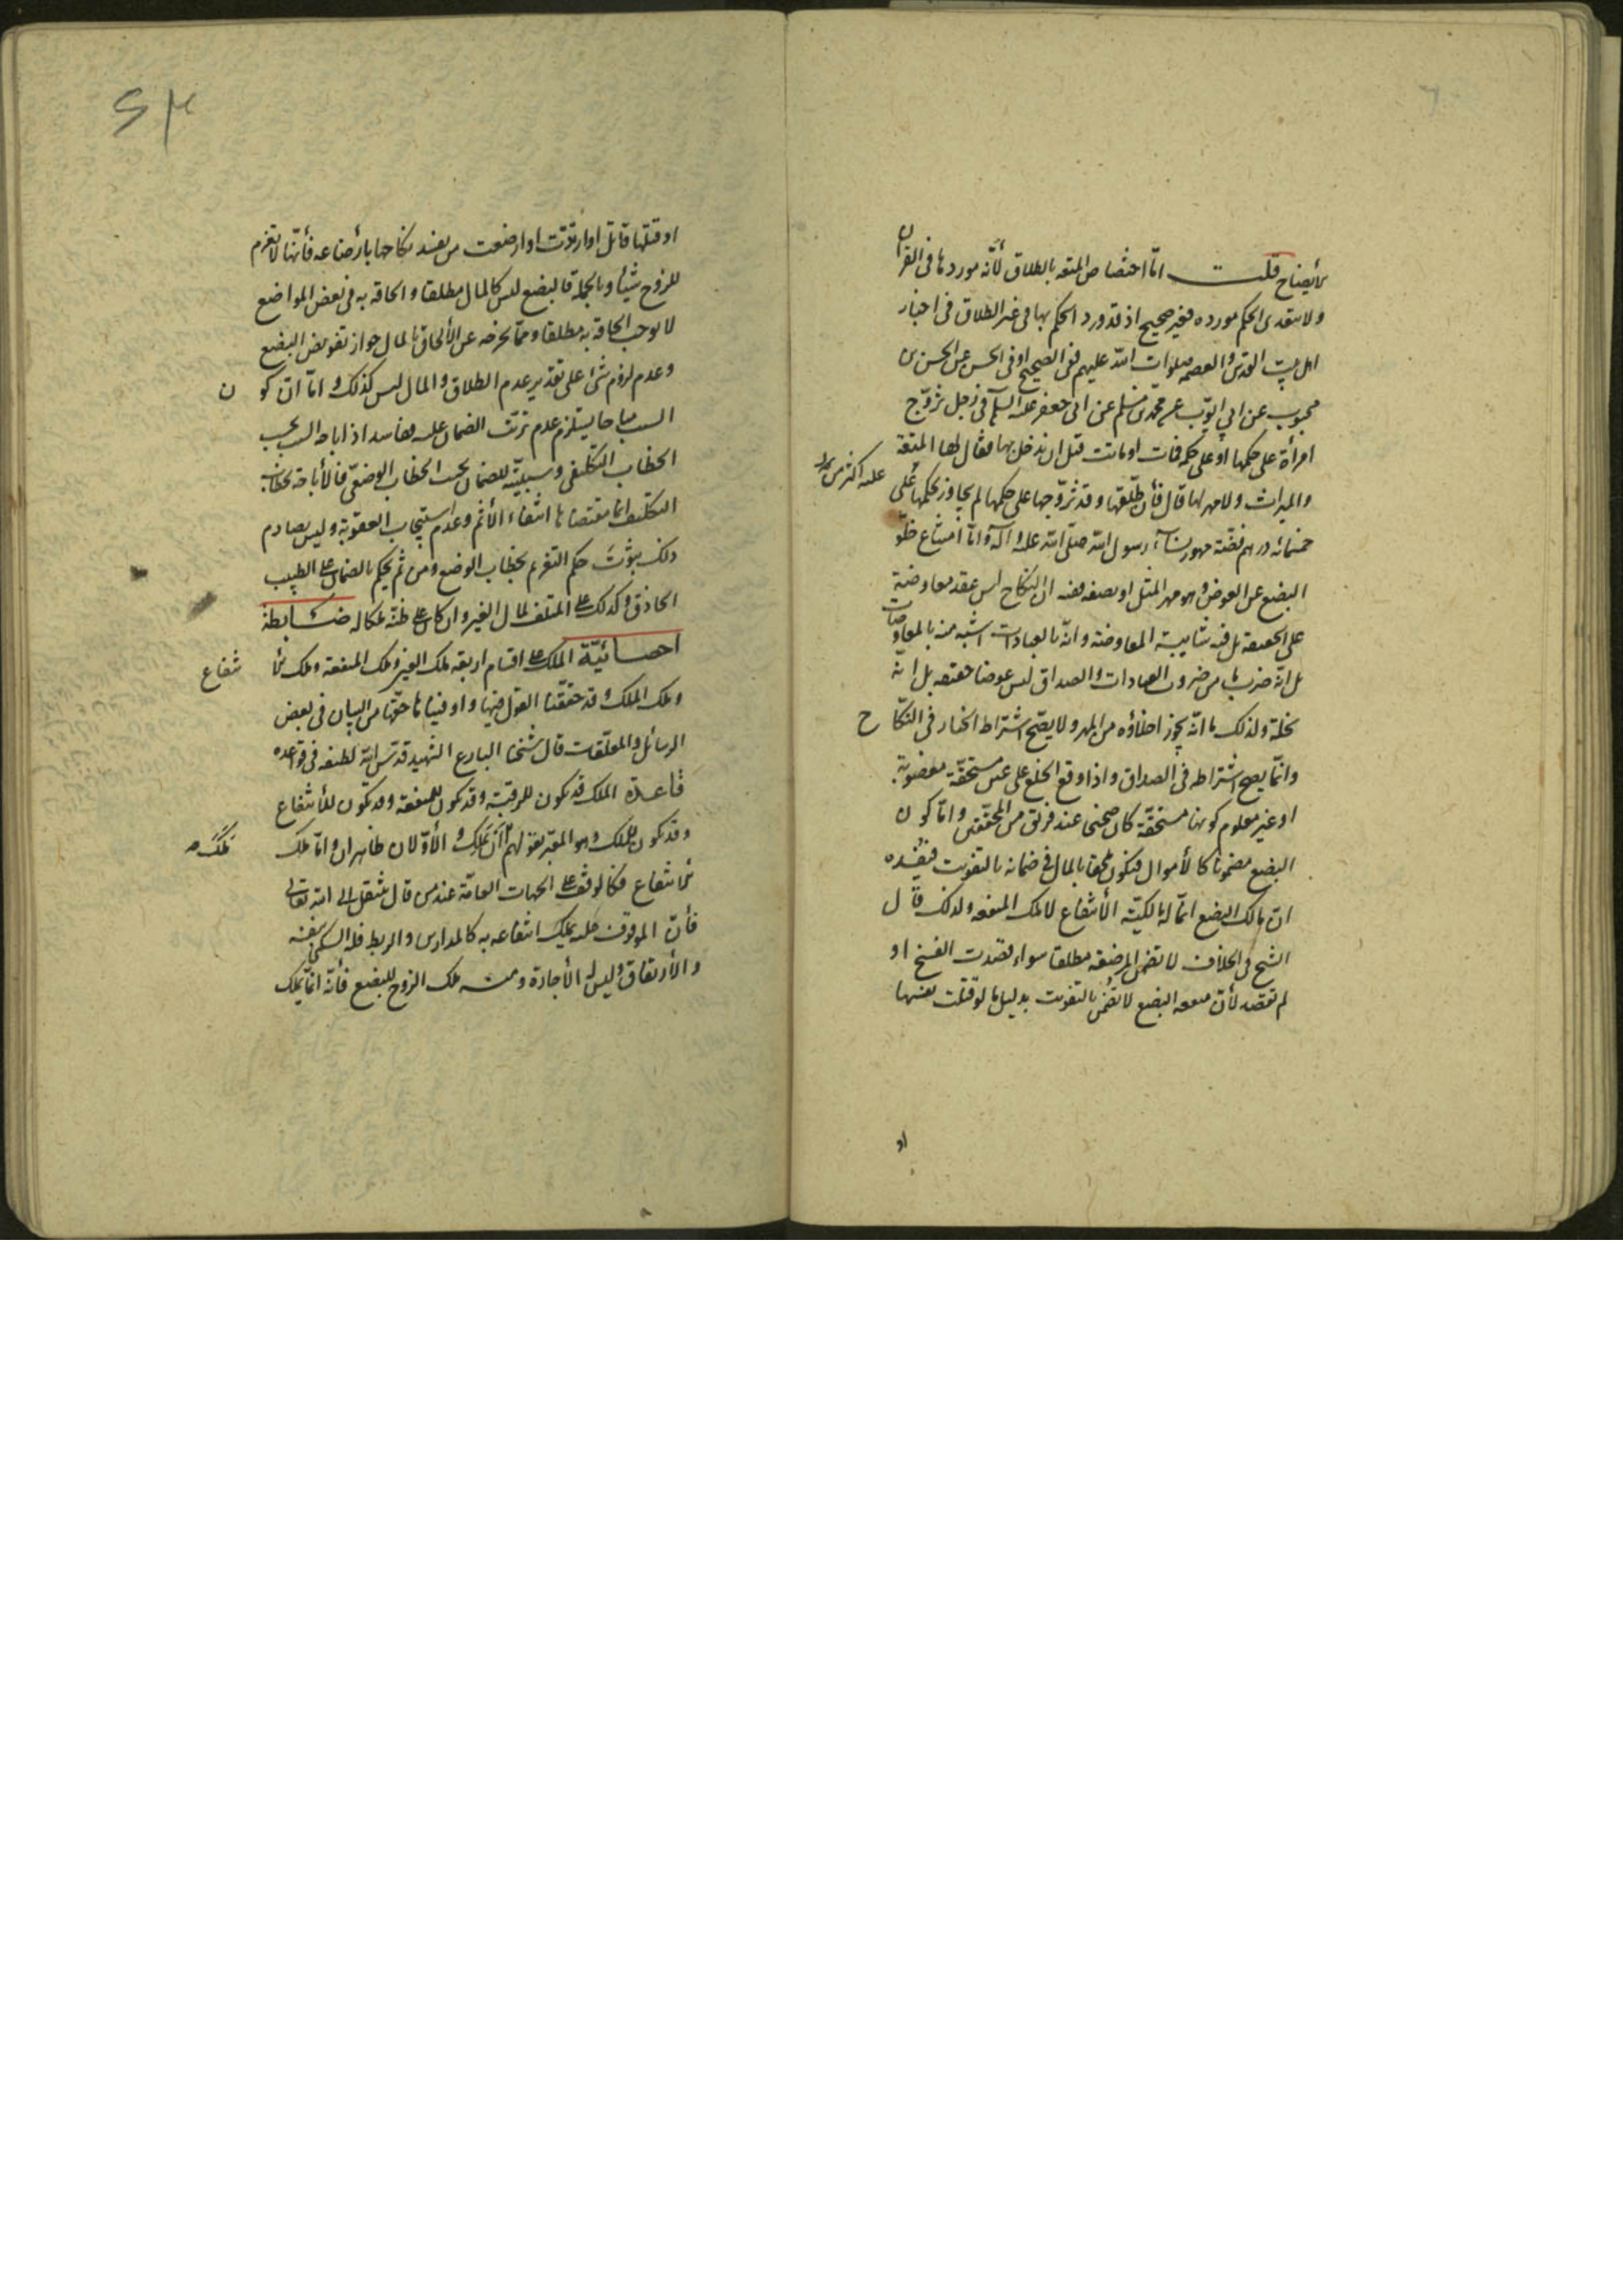 الأيضاح قلت امّا اختصاص المتعه بالطلاق لأنّه موردها فى القرآن
ولا يتعدى الحكم مورده فغير صحيح اذ قد ورد الحكم بها فى غير الطلاق فى اخبار
اهل بيت القدس والعصمه صلوات الله عليهم ففى الصحيح او فى الحسن عن الحسن بن
محبوب عن ابى ايوّب عن محمّد بن مسلم عن ابى جعفر عليه السلام فى رجل تزوّج
امرأة على حكمها او على حكمه فمات او ماتت قبل ان يدخل بها فقال لها المتعة
والميراث ولا مهر لها قال فأن طلّقها وقد تزوّجها على حكمها لم يجاوز بحكمها على
عليه اكثر من
خمسمائه درهم فضّة مهور نسآء رسول الله صلّى الله عليه وآله وامّا امتناع خلّو
البضع عن العوض وهو مهر المثل او نصفه ففيه ان النكاح ليس عقد معاوضة
على الحقيقة بل فيه شايبة المعاوضة وانّه بالعبادات اشبه منه بالمعاوضات
بل انّه ضرب ما من ضروب العبادات والصداق ليس عوضا حقيقه بل انّه
نحلة ولذلك ما انّه يجوز اخلاؤه من المهر ولا يصّح اشتراط الخيار فى النكّاح
وانّما يصح اشتراطه فى الصداق واذا وقع الخلع على عين مستحقّة مغصوبة
او غير معلوم كونها مستحقّة كان صحيحا عند فريق من المحقّقين وامّا كون
البضع مضمونا كالأموال فيكون ملحقا بالمال فى ضمانه بالتفويت فيفسده
انّ مالك البضع انمّا له مالكيّة الأنتفاع لا ملك المنفعه ولذلك قال
الشيخ فى الخلاف لا تضمن المرضعه مطلقا سواء قصدت الفسخ او
لم تقصد لأن منفعه البضع لا تضمن بالتفويت بدليل ما لو قتلت نفسها
او
او قتلها قاتل او ارتدّت او ارضعت من يفسد نكاحها بارضاعه فأنّها لا تغرم
للزوج شيئا وبالجملة فالبضع ليس كالمال مطلقا والحاقه به فى بعض المواضع
لا يوجب الحاقه به مطلقا وممّا يخرجه عن الألحاق بالمال جواز تفويض البضع
وعدم لزوم شئ على تقدير عدم الطلاق والمال ليس كذلك وامّا انّ كون
السبب مباحا يستلزم عدم ترتّب الضمان عليه ففاسد اذ اباحه السبب بحسب
الخطاب التكليفى وسببيّته للضمان بحسب الخطاب الوضعّى فالأباحة بخطاب
التكليف انما مقتضاها انتفاء الأثم وعدم استيجاب العقوبة وليس يصادم
ذلك ثبوت حكم التغريم بخطاب الوضع ومن ثم يحكم بالضمان على الطبيب
الحاذق وكذلك على المتلف لمال الغير وان كان على ظنّه لمكاله ضابطة
احصائيّة الملك على اقسام اربعة ملك العين وملك المنفعة وملك الأنتفاع
وملك الملك وقد حقّقنا القول فيها واوفيناها حقّها من البيان فى بعض
الرسائل والمعلّقات قال شيخنا البارع الشهيد قدّس الله لطيفه فى قواعده
قاعدة الملك قد يكون للرقبة وقد يكون للمنفعة وقد يكون للأنتفاع
وقد يكون للملك وهو المعبّر بقولهم ملك أن تملك والأوّلان ظاهران وامّا ملك
الأنتفاع فكالوقف على الجهات العامّة عند من قال ينتقل الى الله تعالى
فأنّ الموقوف عليه يملك انتفاعه به كالمدارس والربط فله السكنى بنفسه
والأرتفاق وليس له الأجارة ومنه ملك الزوج للبضع فأنّه انّما يملك